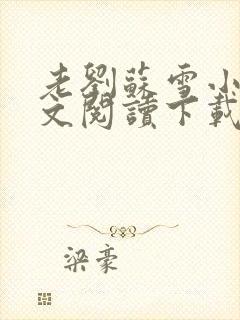 老劉蘇雪小
文閱讀下載
梁豪